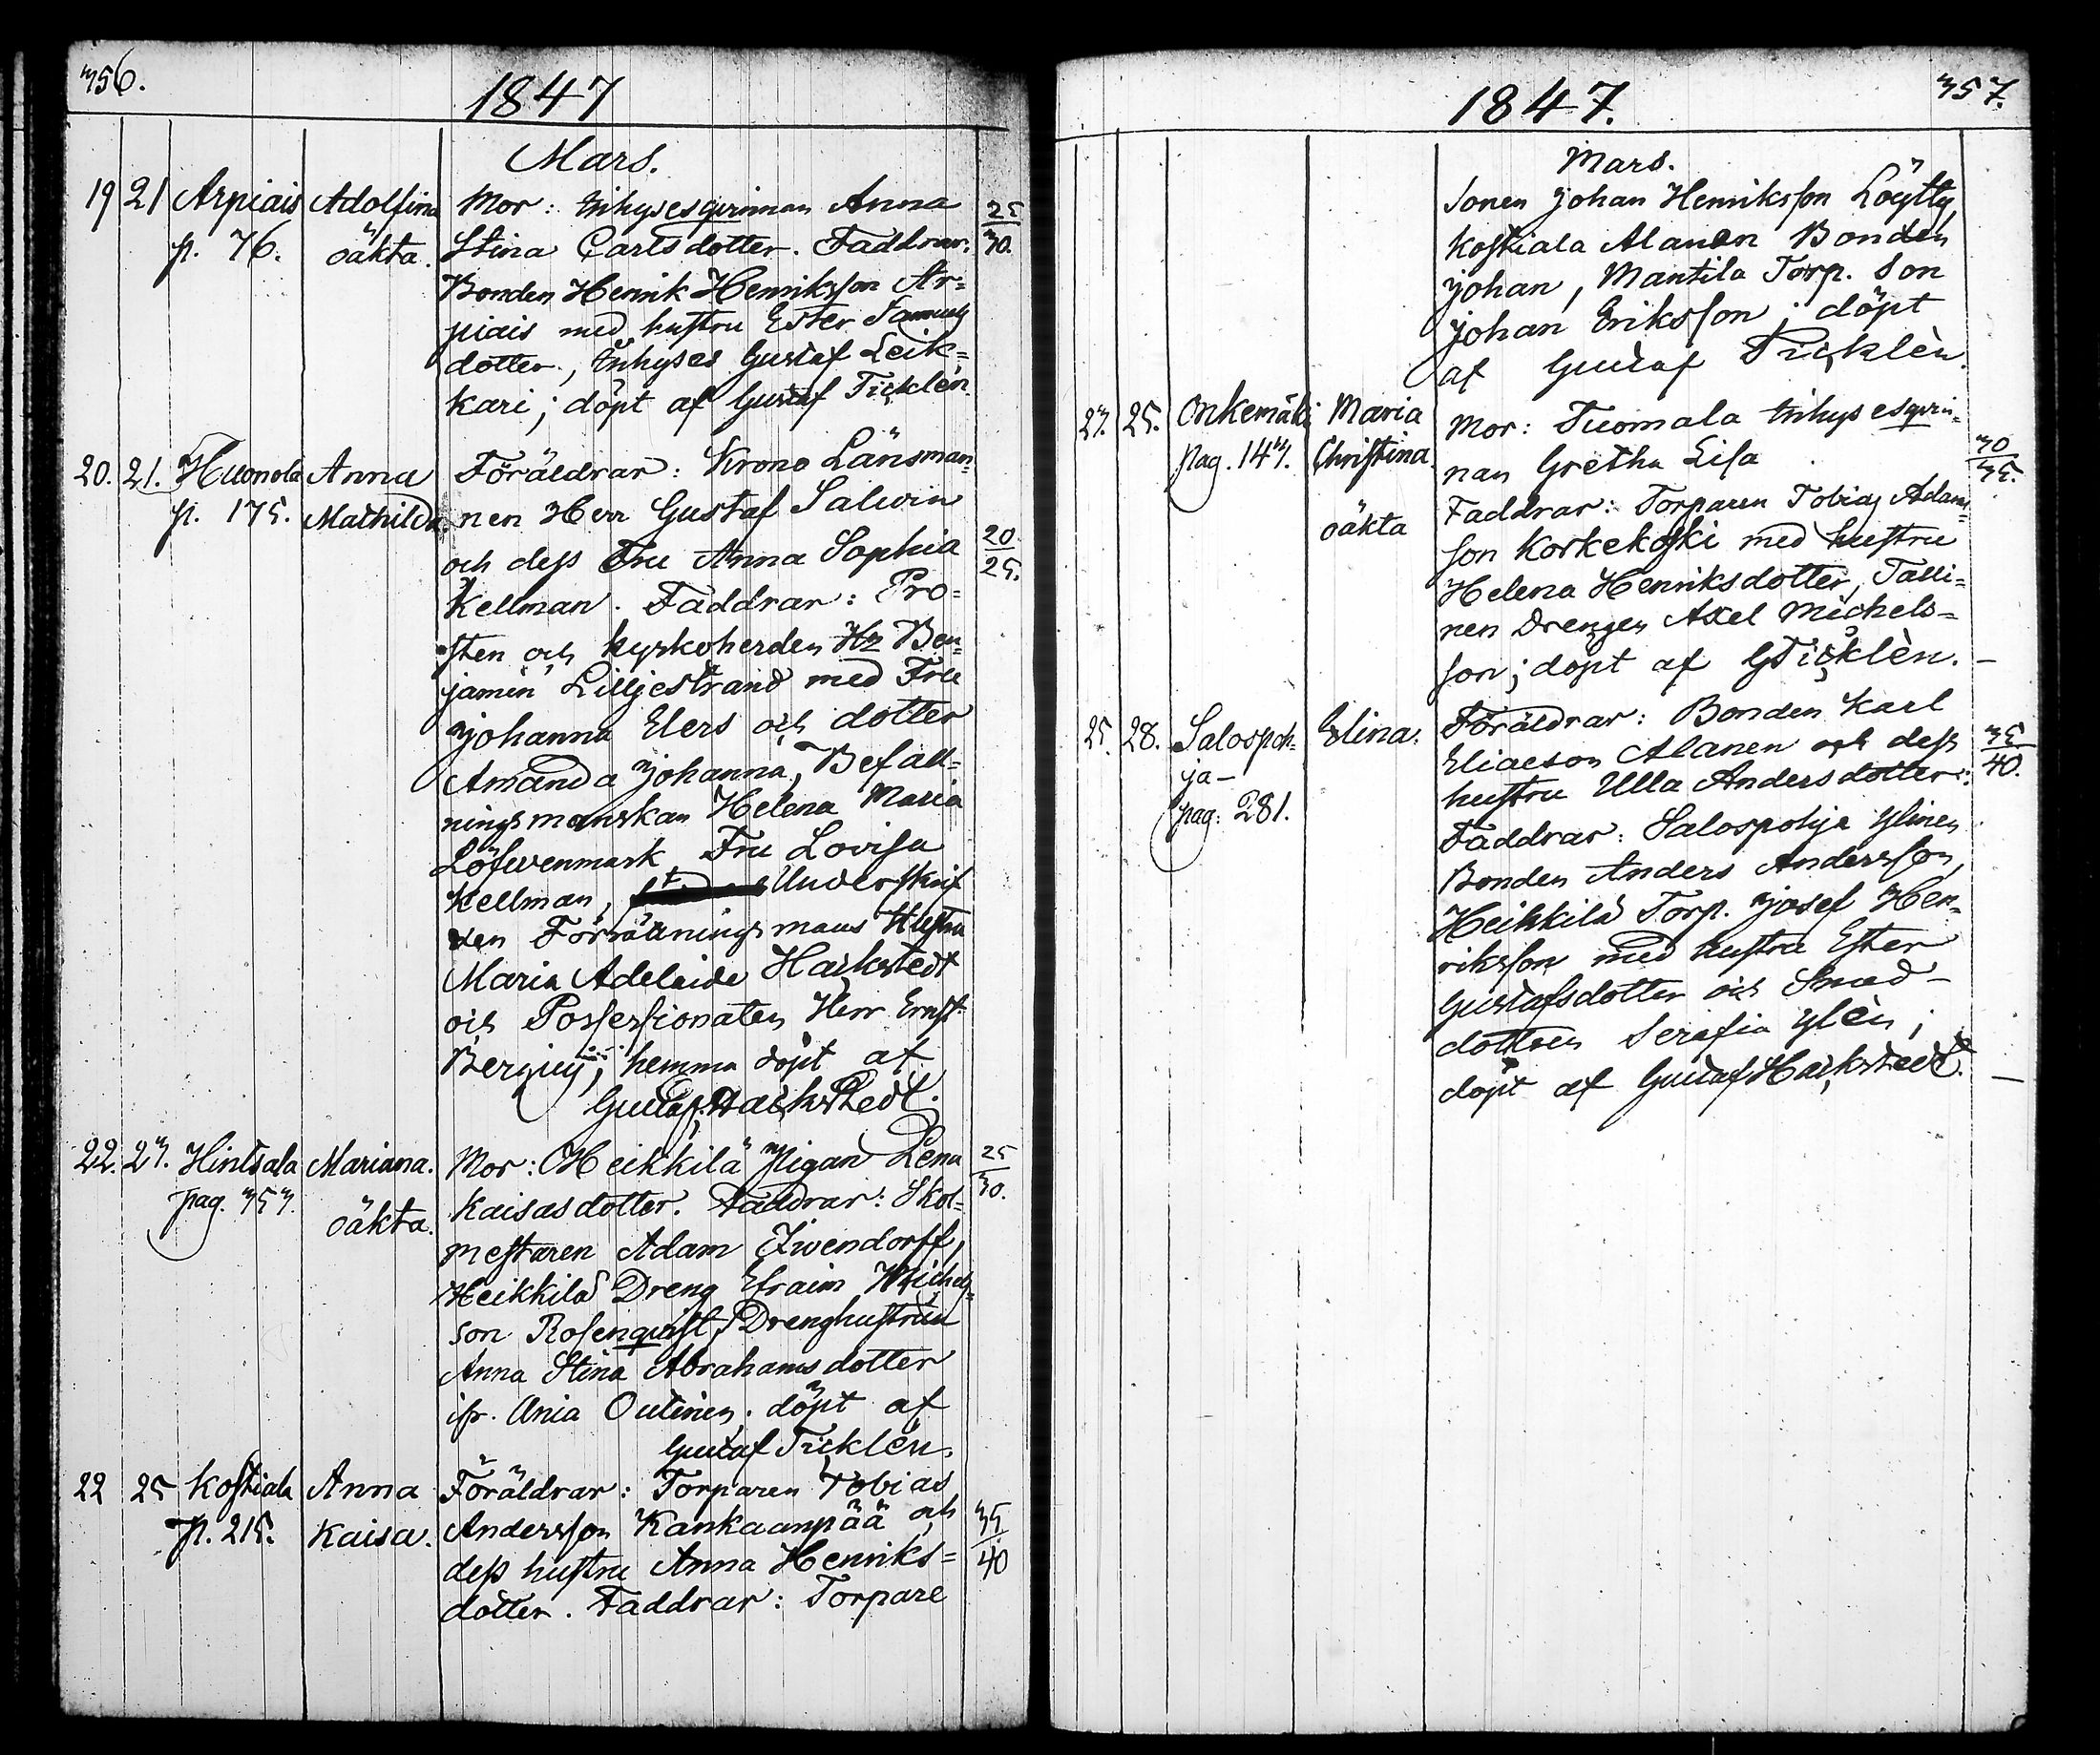 356.
1847
Mars.
19 21 Arpiais Adolfina Mor: Inhysesqvinnan Anna 25
p. 76. oäkta. Stina Carlsdotter. Faddrar: 30.
Bonden Henrik Henriksson Ar=
piais med hustru Ester Samuels
dotter, Inhyses Gustaf Leik=
kari; döpt af Gustaf Ticklén.
20. 21. Huonola Anna Föräldrar: Krono Länsman
p. 175. Mathilda. nen Herr Gustaf Salvin
och dess Fru Anna Sophia 20
Kellman. Faddrar: Pro= 25.
sten och Kyrkoherden Hr Ben=
jamin Lilljestrand med Fru
Johanna Elers och dotter
Amanda Johanna, Befall=
ningsmanskan Helena Maria
Löfwenmark, Fru Lovisa
Kellman, Underskrif
ven Förrättnings mans Hustru
Maria Adelaide Hackstedt
och Possessionaten Herr Ernst
hemma döpt af
Gustaf Hackstedt.
22. 23. Hintsala Mariana. Mor: Heikkilä Pigan Lena 25
pag. 353. oäkta. Kaisasdotter. Faddrar: Skol= 30.
mestaren Adam Zwendorff,
Heikkilä Dreng Efraim Michels=
son Rosenqvist, Drenghustrun
Anna Stina Abrahamsdotter
Ania Outinen; döpt af
Gustaf Ticklén.
22 25 Kostiala Anna Föräldrar: Torparen Tobias
p. 215. Kaisa. Andersson Kankaanpää och 35
dess hustru Anna Henriks= 40
dotter. Faddrar: Torpare
357.
1847.
Mars.
sonen Johan Henriksson Löytty,
Kostiala Alanen Bonden
Johan, Mantila Torp. Son
Johan Eriksson; döpt
af Gustaf Ticklèn.
23. 25. Onkemäki Maria Mor: Tuomala Inhysesqvin=
pag. 143. Christina. nan Gretha Lisa 30
oäkta Faddrar: Torparen Tobias Adams= 35.
son Korkekoski med hustru
Helena Henriksdotter, Talli=
nen Drengen Axel Michels=
son; döpt af GTicklèn. —
25. 28. Salospoh= Elina. Föräldrar: Bonden Karl
ja — Eliaeson Alanen och dess 35
pag: 281. hustru Ulla Andersdotter: 40.
Faddrar: Salospohja Ylinen
Bonden Anders Andersson,
Heikkilä Torp. Josef Hen=
riksson med hustru Ester
Gustafsdotter och Smed-
dottren Serafia Ylèn;
döpt af Gustaf Hackstedt. —